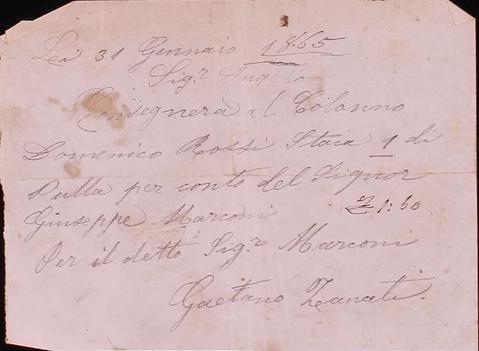 Lei 31 Gennaio 1865
Sigr. Angelo
Consegnera al Colonno
Domenico Rossi Staia 1 di
Pulla per conto del Signor
Giuseppe Marconi £ 1:60
Per il detto Sigr. Marconi
Gaetano Zanati.